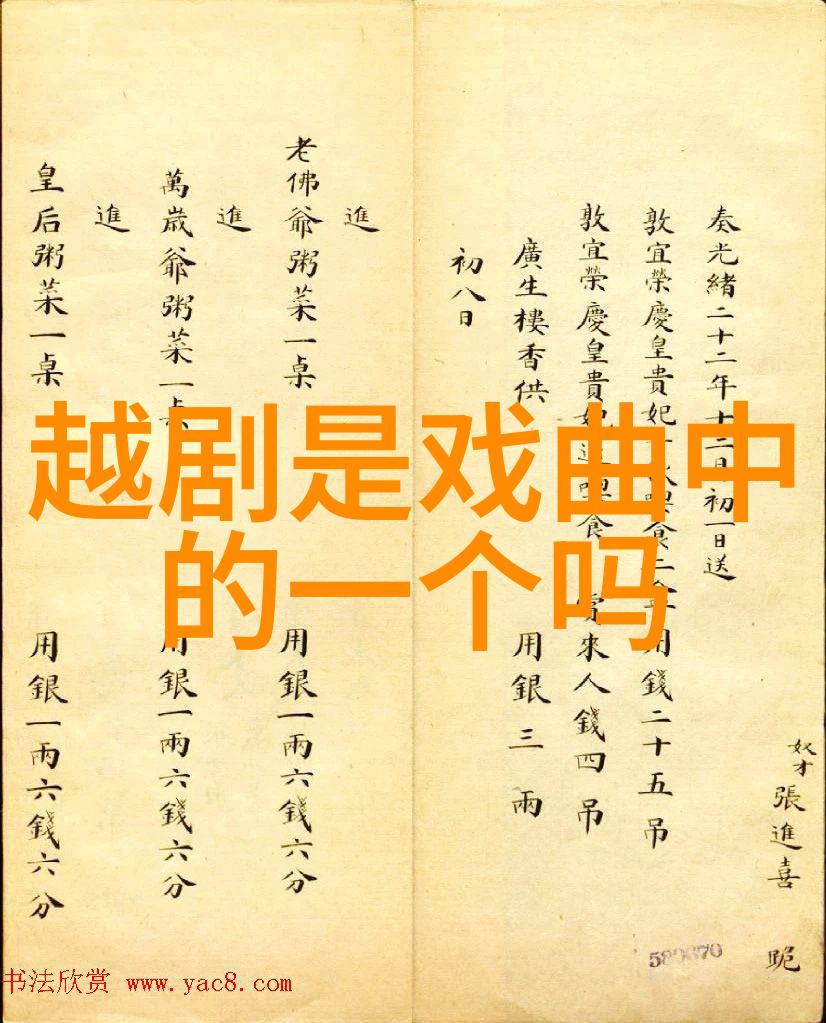 越剧是戏曲中
的一个吗
奴才張進喜 跪
奏光緒二十二年十二月初一日送
敦宜榮慶皇貴妃 食二 用錢二十五吊
敦宜榮慶皇貴妃進 食 賞來人錢四吊
廣生樓香供 用銀三兩
初八日
進
老佛爺粥菜一桌 用銀一兩六錢六分
進
萬歲爺粥菜一桌 用銀一兩六錢六分
進
皇后粥菜一桌 用銀一兩六錢六分
书法欣赏 www.yac8.com